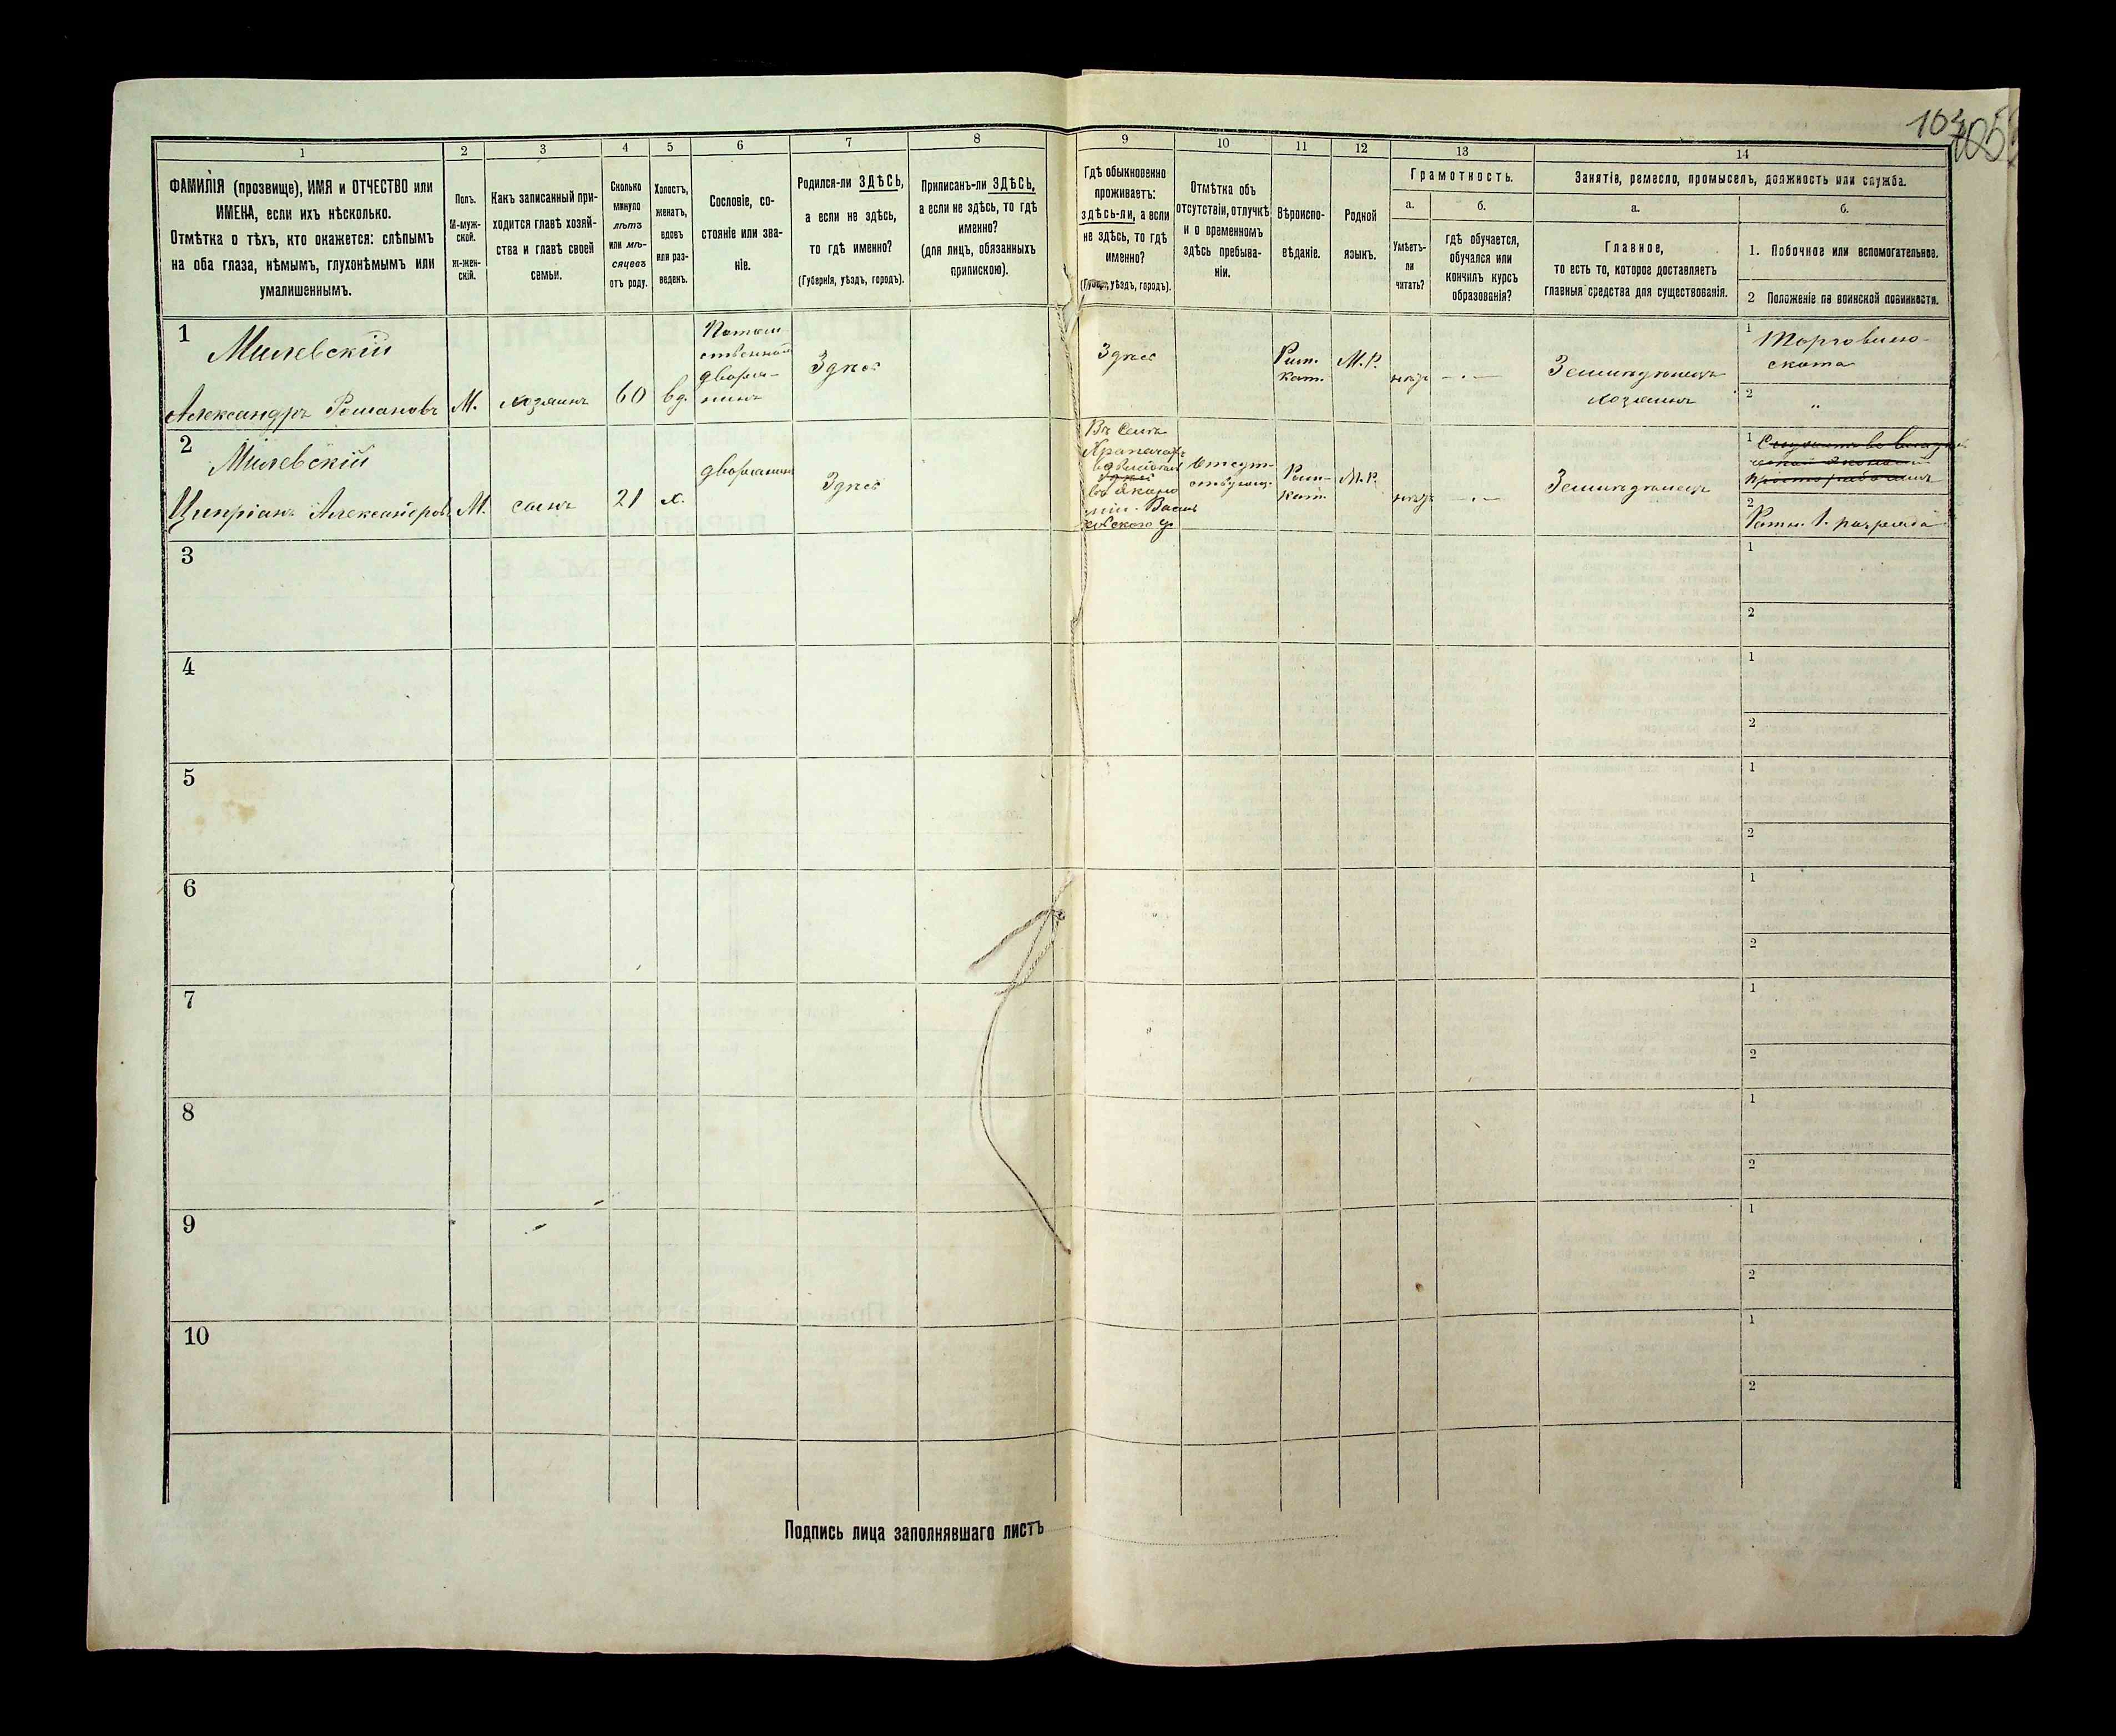 103
105
1
2
3
4
5
6
7
8
9
10
11
12
13
14
ФАМИЛІЯ (прозвище), ИМЯ и ОТЧЕСТВО или
ИМЕНА, если ихъ нѣсколько.
Отмѣтка о тѣхъ, кто окажется: слѣпымъ
на оба глаза, нѣмымъ, глухонѣмымъ или
умалишеннымъ.
Полъ.
М-муж-
ской.
ж-жен-
скій.
Какъ записанный при-
ходится главѣ хозяй-
ства и главѣ своей
семьи.
Сколько
минуло
лѣтъ
или мѣ-
сяцевъ
отъ роду.
Холостъ,
женатъ,
вдовъ
или раз-
веденъ.
Сословіе, со-
стояніе или зва-
ніе.
Родился-ли ЗДѢСЬ,
а если не здѣсь,
то гдѣ именно?
(Губернія, уѣздъ, городъ).
Приписанъ-ли ЗДѢСЬ,
а если не здѣсь, то гдѣ
именно?
(для лицъ, обязанныхъ
припискою).
Гдѣ обыкновенно
проживаетъ:
здѣсь-ли, а если
не здѣсь, то гдѣ
именно?
(Губерн., уѣздъ, городъ).
Отмѣтка объ
отсутствіи, отлучкѣ
и о временномъ
здѣсь пребыва-
ніи.
Вѣроиспо-
вѣданіе.
Родной
языкъ.
Грамотность.
а.
Умѣетъ-
ли
читать?
б.
гдѣ обучается,
обучался или
кончилъ курсъ
образованія?
Занятіе, ремесло, промыселъ, должность или служба.
а.
Главное,
то есть то, которое доставляетъ
главныя средства для существованія.
б.
1. Побочное или вспомогательное.
2 Положеніе по воинской повинности.
1
Милевскій
Александръ Романовъ
М.
хозяинъ
60
вд.
Потом
ственной
дворя-
нинъ
Здѣсь
Здѣсь
Рим.
кат.
М.Р.
нѣтъ
— . —
Земледѣлецъ
хозяинъ
1
Торговлею
скота
2
"
2
Милевскій
Ципріанъ Александровъ
М.
сынъ
21
х.
дворянинъ
Здѣсь
Въ селѣ
отсут-
ствующ.
Рим-
кат.
М.Р.
нѣтъ
— . —
Земледѣлецъ
1
2
Ратн. 1. разряда
3
1
2
4
1
2
5
1
2
6
1
2
7
1
2
8
1
2
9
1
2
10
1
2
Подпись лица заполнявшаго листъ